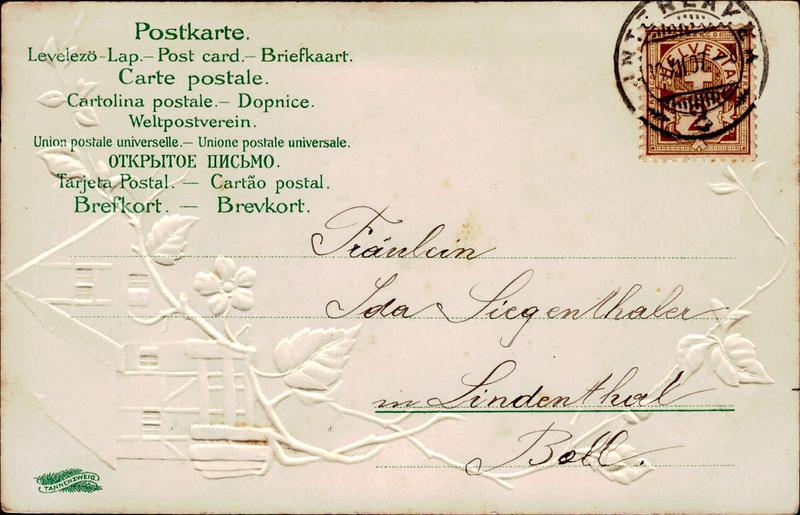 Postkarte.
Levelezö-Lap.— Post card.— Briefkaart.
Carte postale.
Cartolina postale.— Dopnice.
Weltpostverein.
Union postale universelle.— Unione postale universale.
ОТКРЫТОЕ ПИСЬМО.
Tarjeta Postal. — Cartão postal.
Brefkort. — Brevkort.
INTERLAKEN
HELVETIA
2
Fräulein
Ida Siegenthaler
in Lindenthal
Boll.
TANNENZWEIG